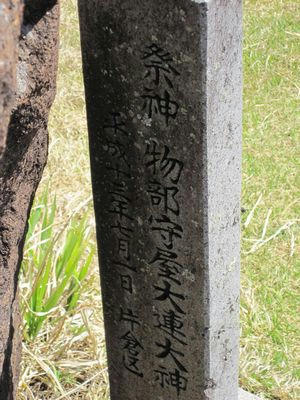 祭神 物部守屋大連大神
平成十三年七月一日 片倉区